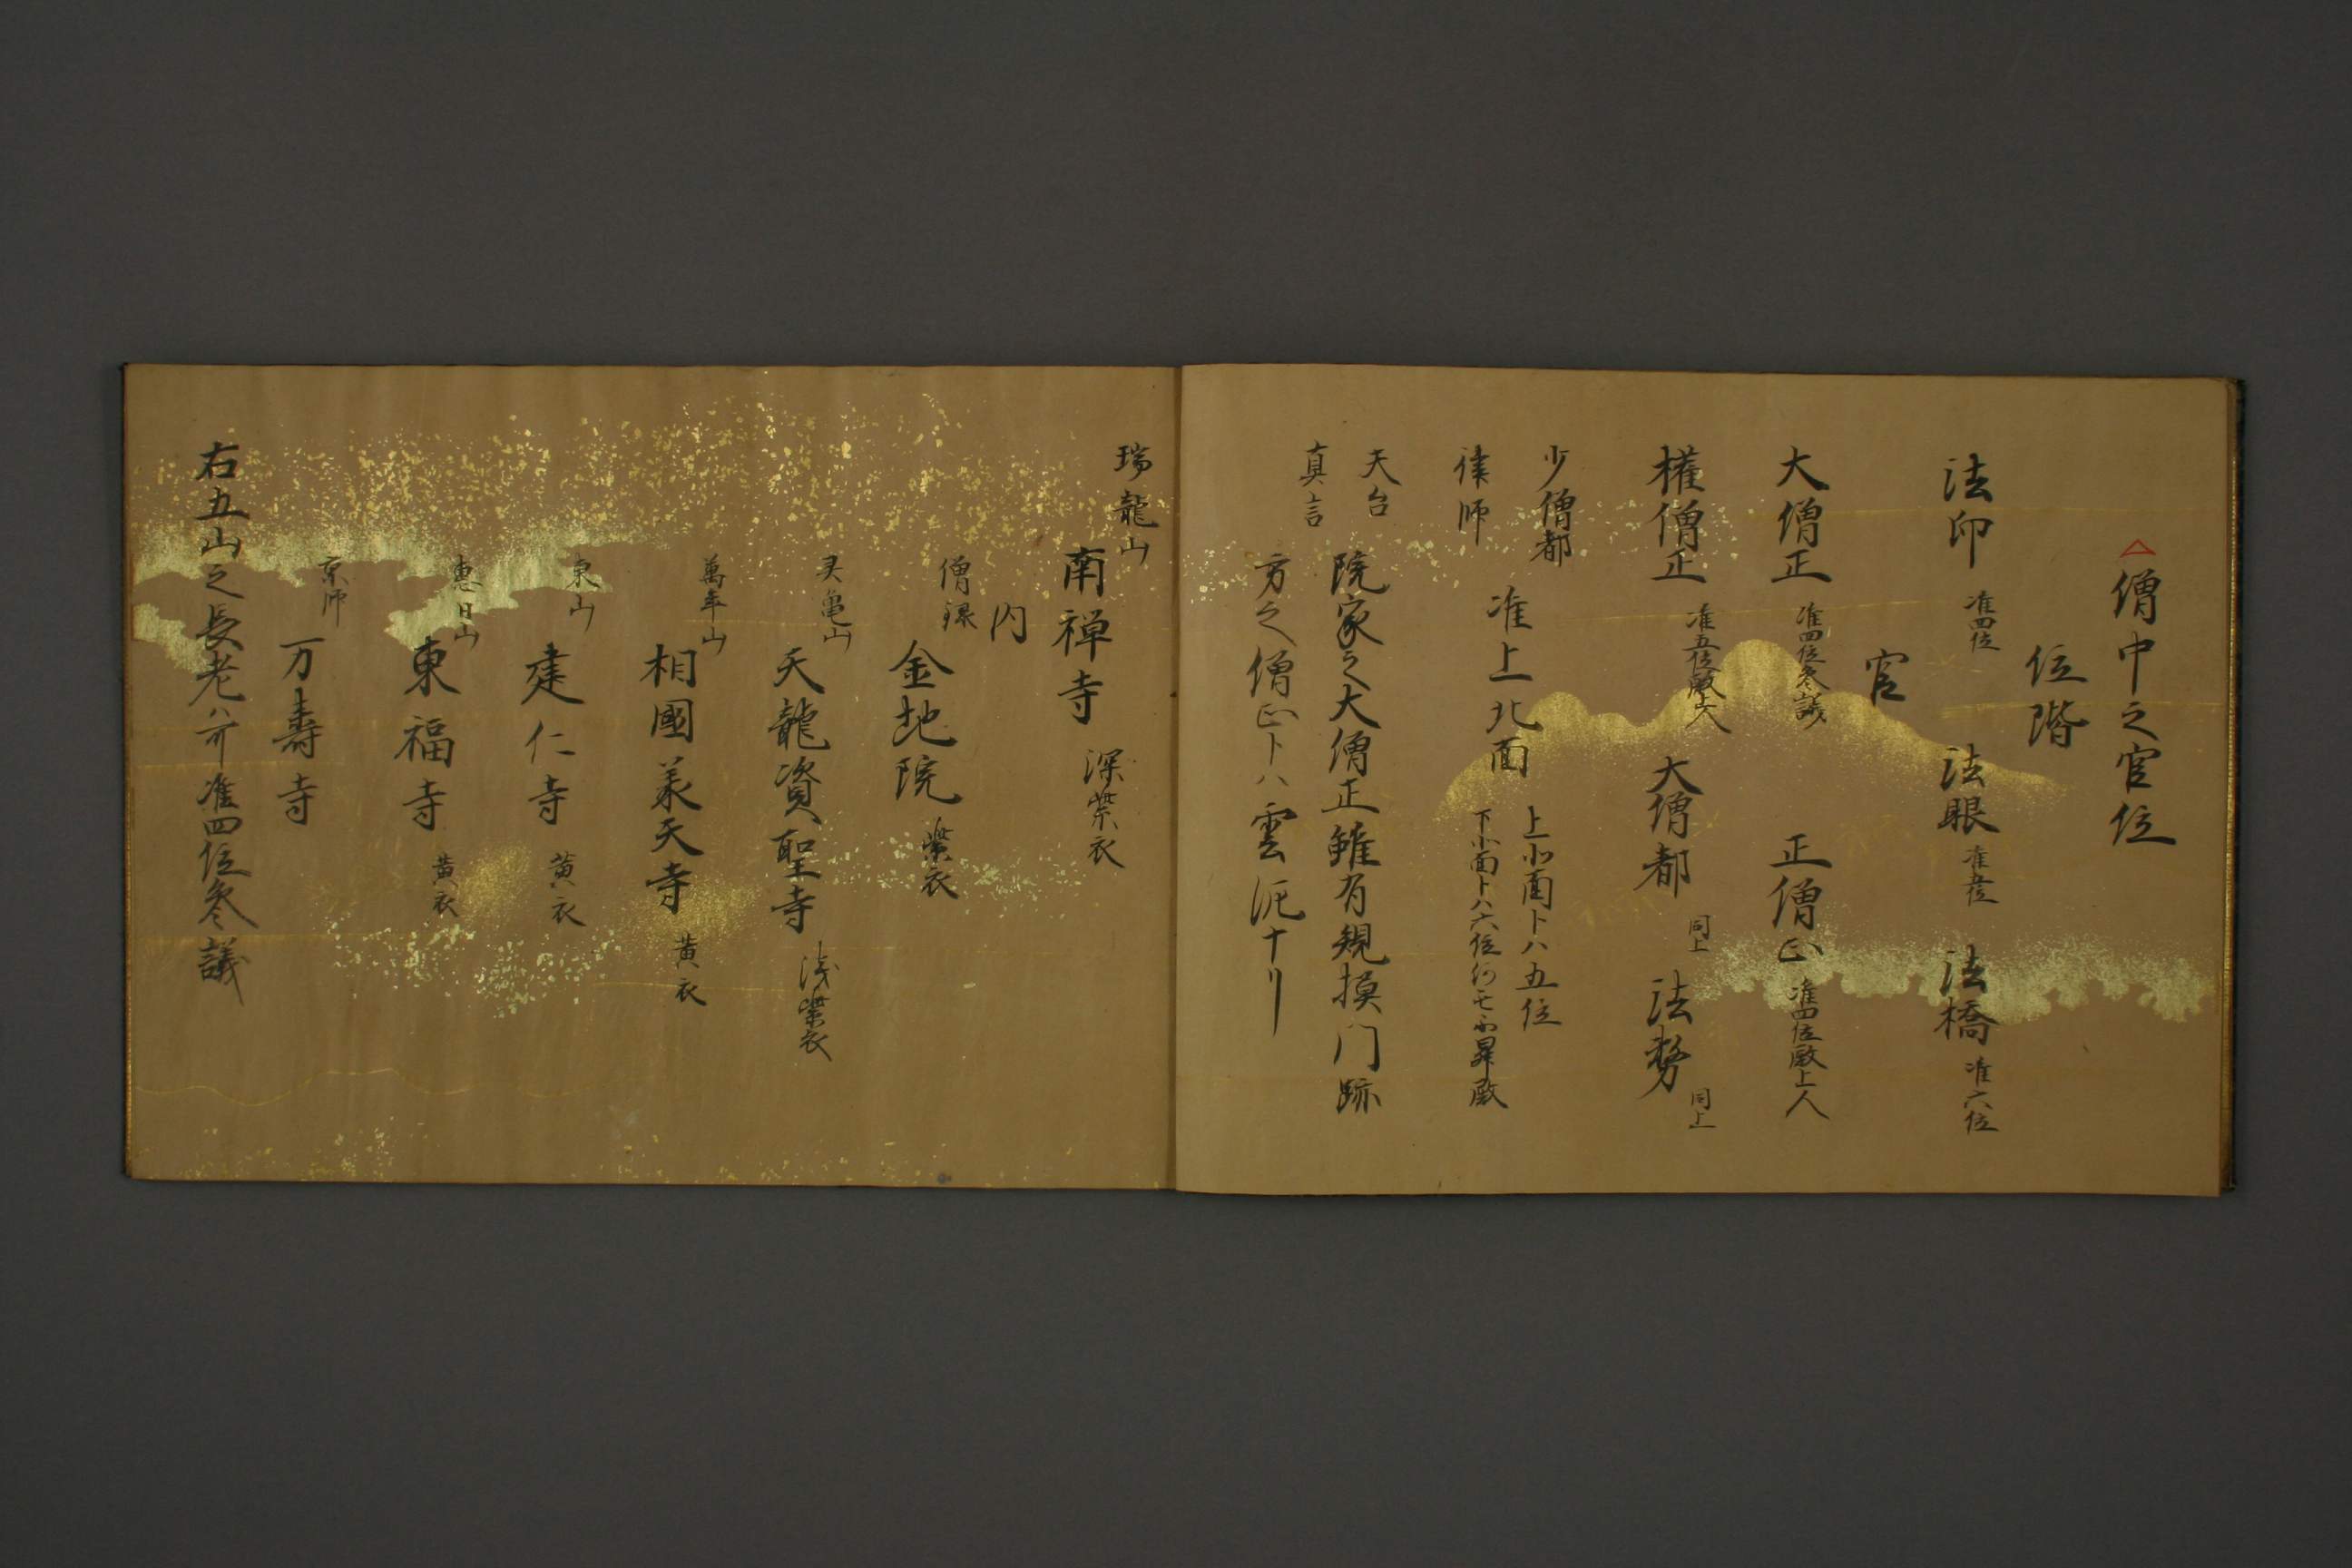 △僧中之官位
位階
法印 准四位 法眼 准五位 法橋 准六位
官
大僧正 准四位参議 正僧正 准四位殿上人
権僧正 准五位殿上人 大僧都 同上 法務 同上
少僧都
律師
准上北面
上北面トハ五位
下北面トハ六位何モ不昇殿
天台
真言
院家之大僧正雖有規摸門跡
方之僧正トハ雲泥ナリ
瑞龍山
南禅寺 深紫衣
内
僧録
金地院 紫衣
灵亀山
天龍資聖寺 浅紫衣
萬年山
相國羕天寺 黄衣
東山
建仁寺 黄衣
惠日山
東福寺 黄衣
京師
万壽寺
右五山之長老ハ可准四位参議